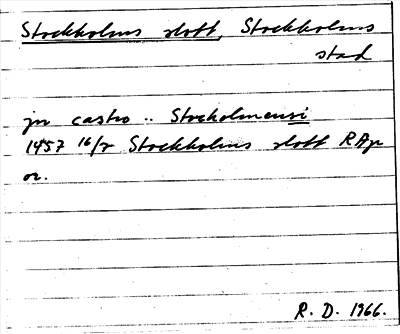 Stockholms slott, Stockholms
stad
jn castro .. Stocholmensi
1457 16/2 Stockholms slott RAp
or.
R. D. 1966.